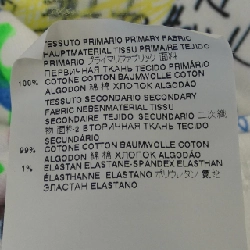 TESSUTO PRIMARIO PRIMARY FABRIC
HAUPTMATERIAL TISSU PRIMAIRE TEJIDO
PRIMÁRIO プライマリファブリック 面料
ПЕРВИЧНАЯ ТКАНЬ TECIDO PRIMÁRIO
100% COTONE COTTON BAUMWOLLE COTON
ALGODON 綿 棉 ХЛОПОК ALGODÃO
TESSUTO SECONDARIO SECONDARY
FABRIC NEBENMATERIAL TISSU
SECONDAIRE TEJIDO SECUNDARIO 二次織
物 面料-2 ВТОРИЧНАЯ ТКАНЬ TECIDO
SECUNDÁRIO
99% COTONE COTTON BAUMWOLLE COTON
ALGODON 綿 棉 ХЛОПОК ALGODÃO
1% ELASTAN ELASTANE-SPANDEX ELASTHAN
ÉLASTHANNE ELASTANO ポリウレタン 氨纶
ЭЛАСТАН ELASTANO